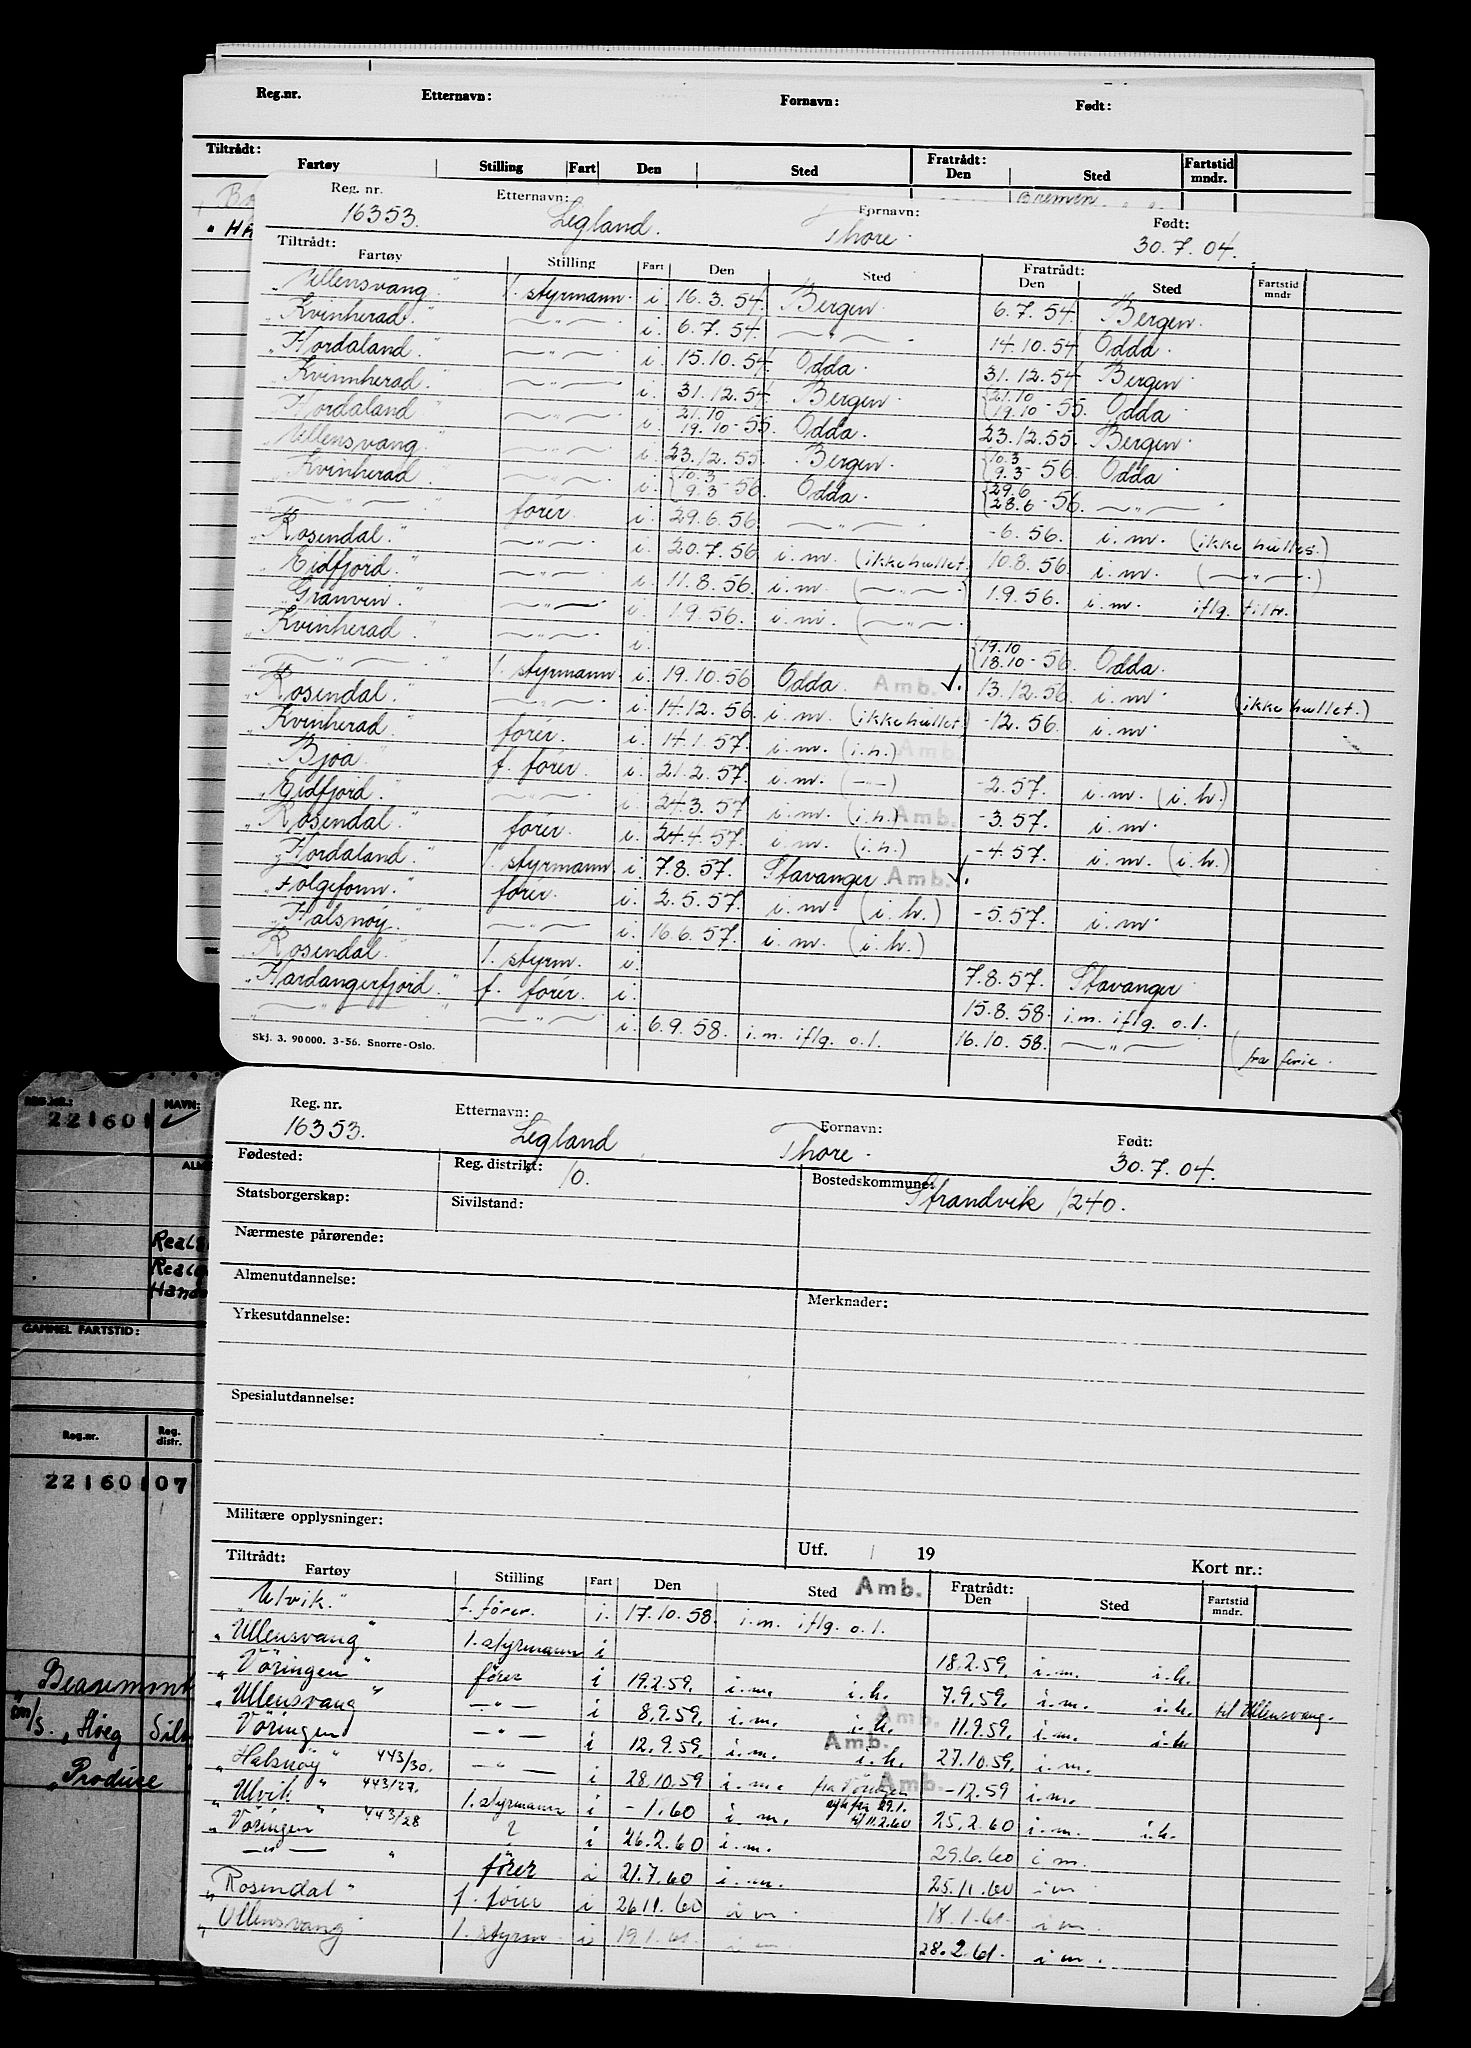 Reg.nr. Etternavn: Fornavn: Født:
Tiltrådt: Fratrådt:
Fartøy Stilling Fart Den Sted Den Sted Fartstid mndr.
Bremen
Reg. nr. Etternavn: Fornavn: Født:
16353. Legland. Thore. 30.7.04.
Tiltrådt: Fratrådt:
Fartøy Stilling Fart Den Sted Den Sted Fartstid mndr
"Ullensvang." 1. styrmann. i. 16.3.54. Bergen. 6.7.54. Bergen.
"Kvinherad." —"— i. 6.7.54. —"— 14.10.54. Odda.
"Hordaland." —"— i. 15.10.54. Odda. 31.12.54. Bergen.
"Kvinnherad." —"— i. 31.12.54. Bergen. {21.10 19.10-55. Odda.
"Hordaland" —"— i. 21.10 19.10-55. Odda. 23.12.55. Bergen.
"Ullensvang" —"— i. 23.12.55. Bergen. {10.3 9.3-56. Odda
"Kvinherad —"— i. {10.3 9.3-56. Odda. {29.6 28.6-56. —"—
—"— fører. i. 29.6.56. —"— -6.56. i.m. (ikke hullet.)
"Rosendal." —"— i. 20.7.56. i.m. (ikke hullet. 10.8.56. i.m. (—"—.)
"Eidfjord." —"— i. 11.8.56. i.m. (—"—) 1.9.56. i.m. iflg. tiltr.
"Granvin." —"— i. 1.9.56. i.m. (—"—
"Kvinherad." —"— i. {19.10 18.10-56. Odda.
—"— 1. styrmann. i. 19.10.56. Odda. Amb. 13.12.56. i.m. (ikke hullet.)
"Rosendal." —"— i. 14.12.56. i.m. (ikke hullet) -12.56. i.m.
"Kvinherad." fører. i. 14.1.57. i.m. (i.h.) Amb.
"Bjoa" f. fører. i. 21.2.57. i.m. (—"—) -2.57. i.m. (i.h.)
"Eidfjord." —"— i. 24.3.57 i.m. (i.h.) Amb. -3.57. i.m.
"Rosendal." fører. i. 24.4.57. i.m. (i.h.) -4.57. i.m. (i.h.)
"Hordaland." 1. styrmann. i. 7.8.57. Stavanger. Amb.
"Folgefonn." fører. i. 2.5.57. i.m. (i.h.) -5.57. i.m.
"Halsnøy." —"— i. 16.6.57. i.m. (i.h.)
"Rosendal." 1. styrm. i. 7.8.57. Stavanger.
"Hardangerfjord." f. fører. i. 15.8.58. i.m. iflg. o.l.
—"— —"— i. 6.9.58. i.m. iflg. o.l. 16.10.58. —"— (fra ferie.
Skj. 3. 90000. 3-56. Snorre-Oslo.
REG.NR.: NAVN:
221601
GAMMEL FARTSTID:
Reg.nr. Reg. distr.
221601 07
"Beaumont
m/s. "Høeg Silv
"Produce
Reg. nr. Etternavn: Fornavn: Født:
16353. Legland, Thore. 30.7.04.
Fødested: Reg. distrikt: 10. Bostedskommune: Strandvik 1240.
Statsborgerskap: Sivilstand:
Nærmeste pårørende:
Almenutdannelse: Merknader:
Yrkesutdannelse:
Spesialutdannelse:
Militære opplysninger:
Utf. / 19 Kort nr.:
Tiltrådt: Fratrådt:
Fartøy Stilling Fart Den Sted Amb. Den Sted Fartstid mndr.
"Ulvik." f. fører. i. 17.10.58. i.m. iflg. o.l.
"Ullensvang" 1. styrmann i 18.2.59. i.m. i.h.
"Vöringen" fører i 19.2.59. i.m. i.h. 7.9.59. i.m. i.h. til Ullensvang.
"Ullensvang" —"— i 8.9.59. i.m. i.h. Amb. 11.9.59. i.m. i.h
Vöringen —"— i 12.9.59. i.m. i.h. Amb. 27.10.59. i.m.
"Halsnøy" 443/30. —"— i 28.10.59 i.m. Amb. -12.59 i.m.
"Ulvik" 443/27. 1. styrmann i -1.60 i m. 25.2.60 i.m. i.h.
"Vöringen" 443/28 ? i 26.2.60 i.m. 29.6.60 i m.
—"— " fører i 21.7.60 i.m. 25.11.60 i m
"Rosendal" f. fører i 26.11.60 i m. 18.1.61. i m.
"Ullensvang" 1. styrm i 19.1.61. i m. 28.2.61. i m.